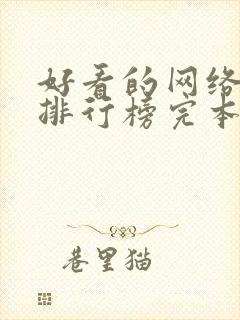 好看的网络
排行榜完本
巷里猫